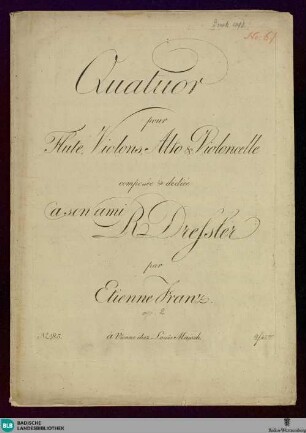 Quatuor
pour
Flute, Violons, Alto & Violoncelle
composée & dediée
a son ami R Dreſsler
par
Etienne Franz.
op. 2.
à Vienne chez Louis Maisch.
BLB
BADISCHE
LANDESBIBLIOTHEK
Baden-Württemberg